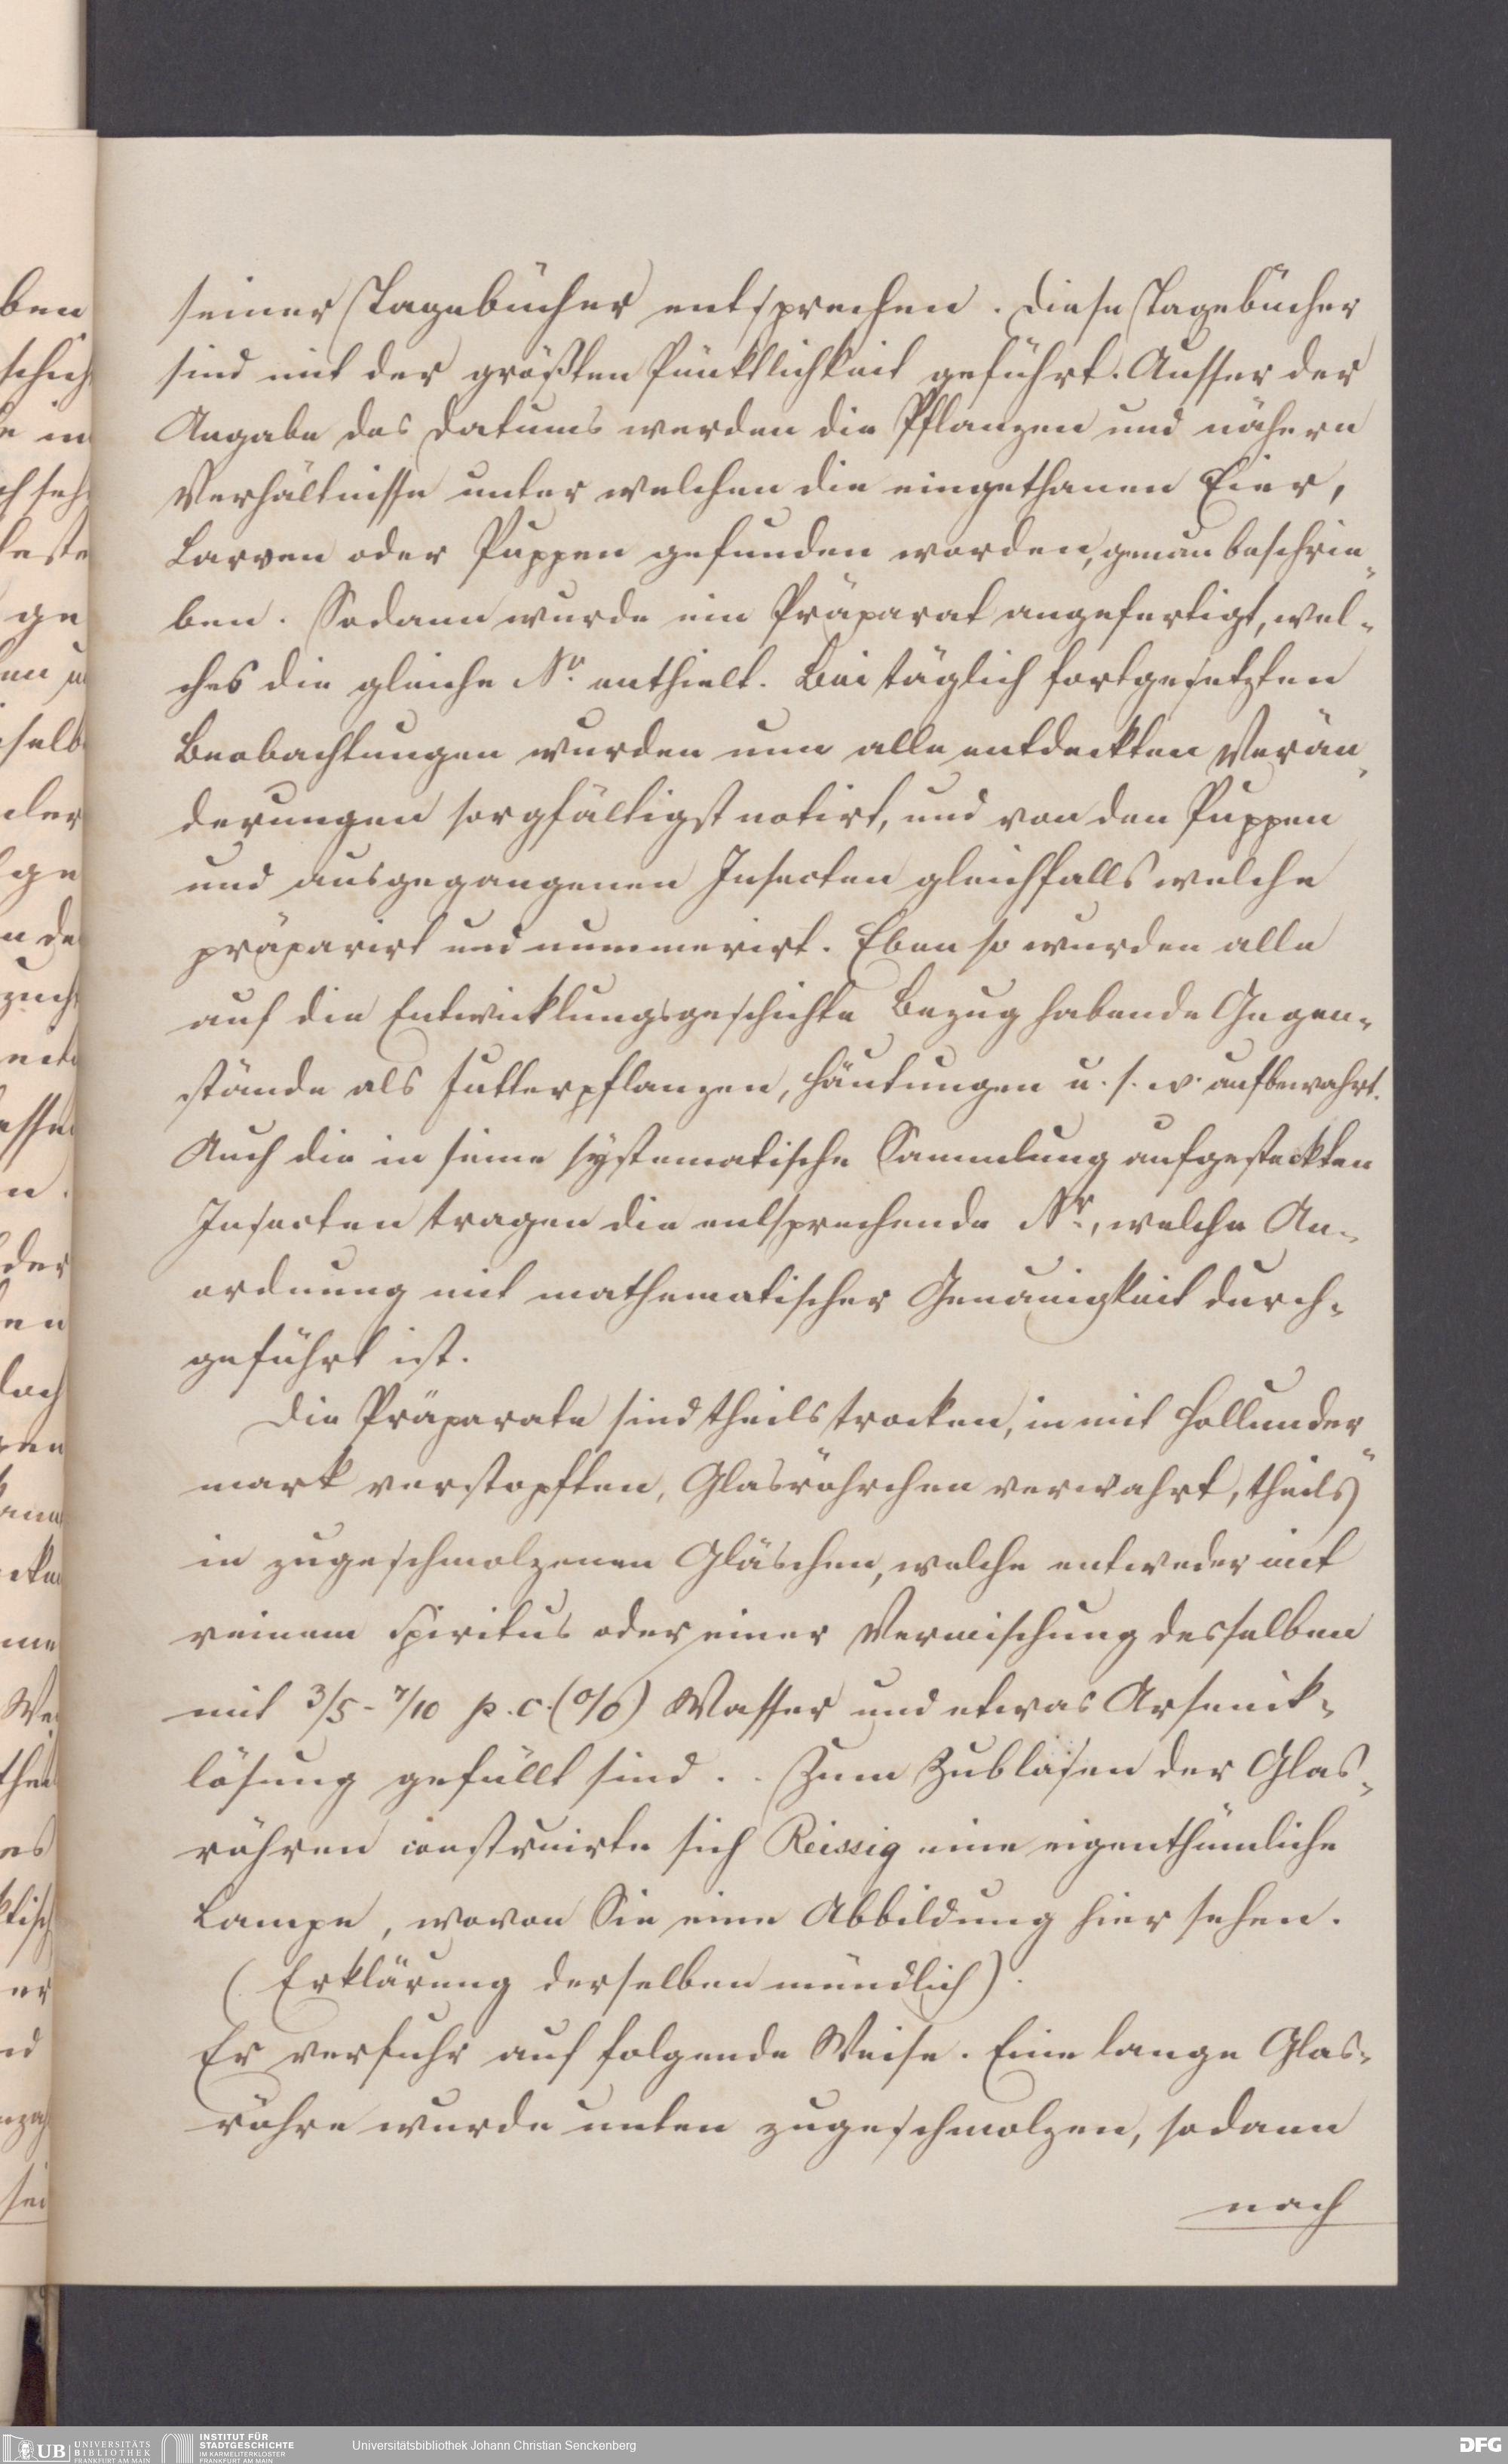 seiner Tagebücher entsprechen. Diese Tagebücher
sind mit der größten Pünktlichkeit geführt. Ausser der
Angabe des Datums werden die Pflanzen und nähern
Verhältnisse unter welchen die eingethanen Eier,
Larven oder Puppen gefunden worden, genau beschrie-
ben. Sodann wurde ein Präparat angefertigt, wel-
ches die gleiche Nr. enthielt. Bei täglich fortgesetzten
Beobachtungen wurden nun alle entdeckten Verän-
derungen sorgfältigst notirt, und von den Puppen
und ausgegangenen Insecten gleichfalls welche
präparirt und nummerirt. Eben so wurden alle
auf die Entwicklungsgeschichte Bezug habende Gegen-
stände als Futterpflanzen, Häutungen u. s. w. aufbewahrt.
Auch die in seine systematische Sammlung aufgesteckten
Insecten tragen die entsprechende Nr., welche An-
ordnung mit mathematischer Genauigkeit durch-
geführt ist.
Die Präparate sind theils trocken, in mit Hollunder-
mark verstopften, Glasröhrchen verwahrt, theils
in zugeschmolzenen Gläschen, welche entweder mit
reinem Spiritus oder einer Vermischung desselben
mit 3/5 - 7/10 p. c. (%) Wasser und etwas Arsenik-
lösung gefüllt sind. . Zum Zublasen der Glas-
röhren construirte sich Reissig eine eigenthümliche
Lampe, wovon Sie eine Abbildung hier sehen.
(Erklärung derselben mündlich).
Er verfuhr auf folgende Weise. Eine lange Glas-
röhre wurde unten zugeschmolzen, sodann
nach
UB UNIVERSITÄTS
BIBLIOTHEK
FRANKFURT AM MAIN
INSTITUT FÜR
STADTGESCHICHTE
IM KARMELITERKLOSTER
FRANKFURT AM MAIN
Universitätsbibliothek Johann Christian Senckenberg
DFG